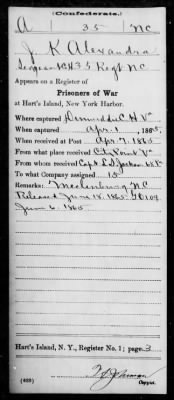 (Confederate.)
A 35 NC
J. K. Alexandra
Sergeant Co H 35 Regt NC
Appears on a Register of
Prisoners of War
at Hart's Island, New York Harbor.
Where captured Dinwiddie C. H. Va
When captured Apr. 1, 1865.
When received at Post Apr. 7, 1865
From what place received City Point Va
From whom received Capt
To what company assigned 15
Remarks: Mecklenburg NC
Released June 18. 1865. GO 109
June 6. 1865
Hart's Island, N. Y., Register No. 1; page 3
(489)
Copyist.